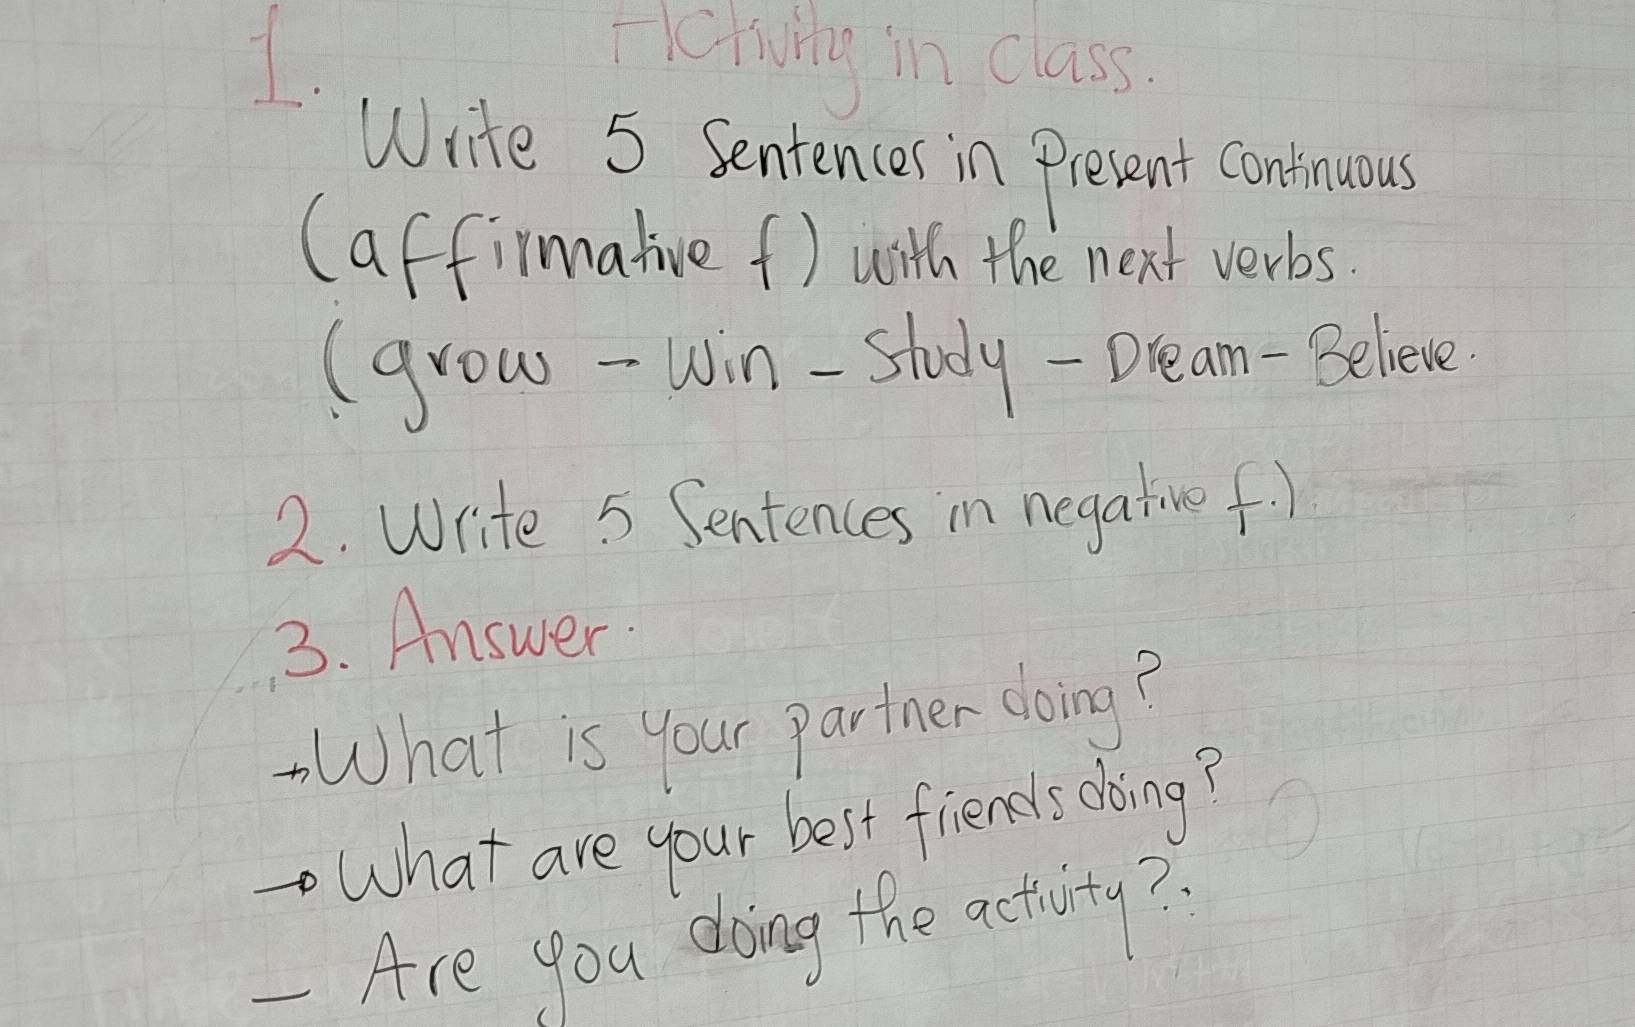 1. Activity in class.
Write 5 Sentences in Present Continuous
(affirmative f) with the next verbs.
(grow - Win - Study - Dream - Believe.
2. Write 5 Sentences in negative f.)
3. Answer.
→What is your partner doing?
→What are your best friends doing?
- Are you doing the activity?.